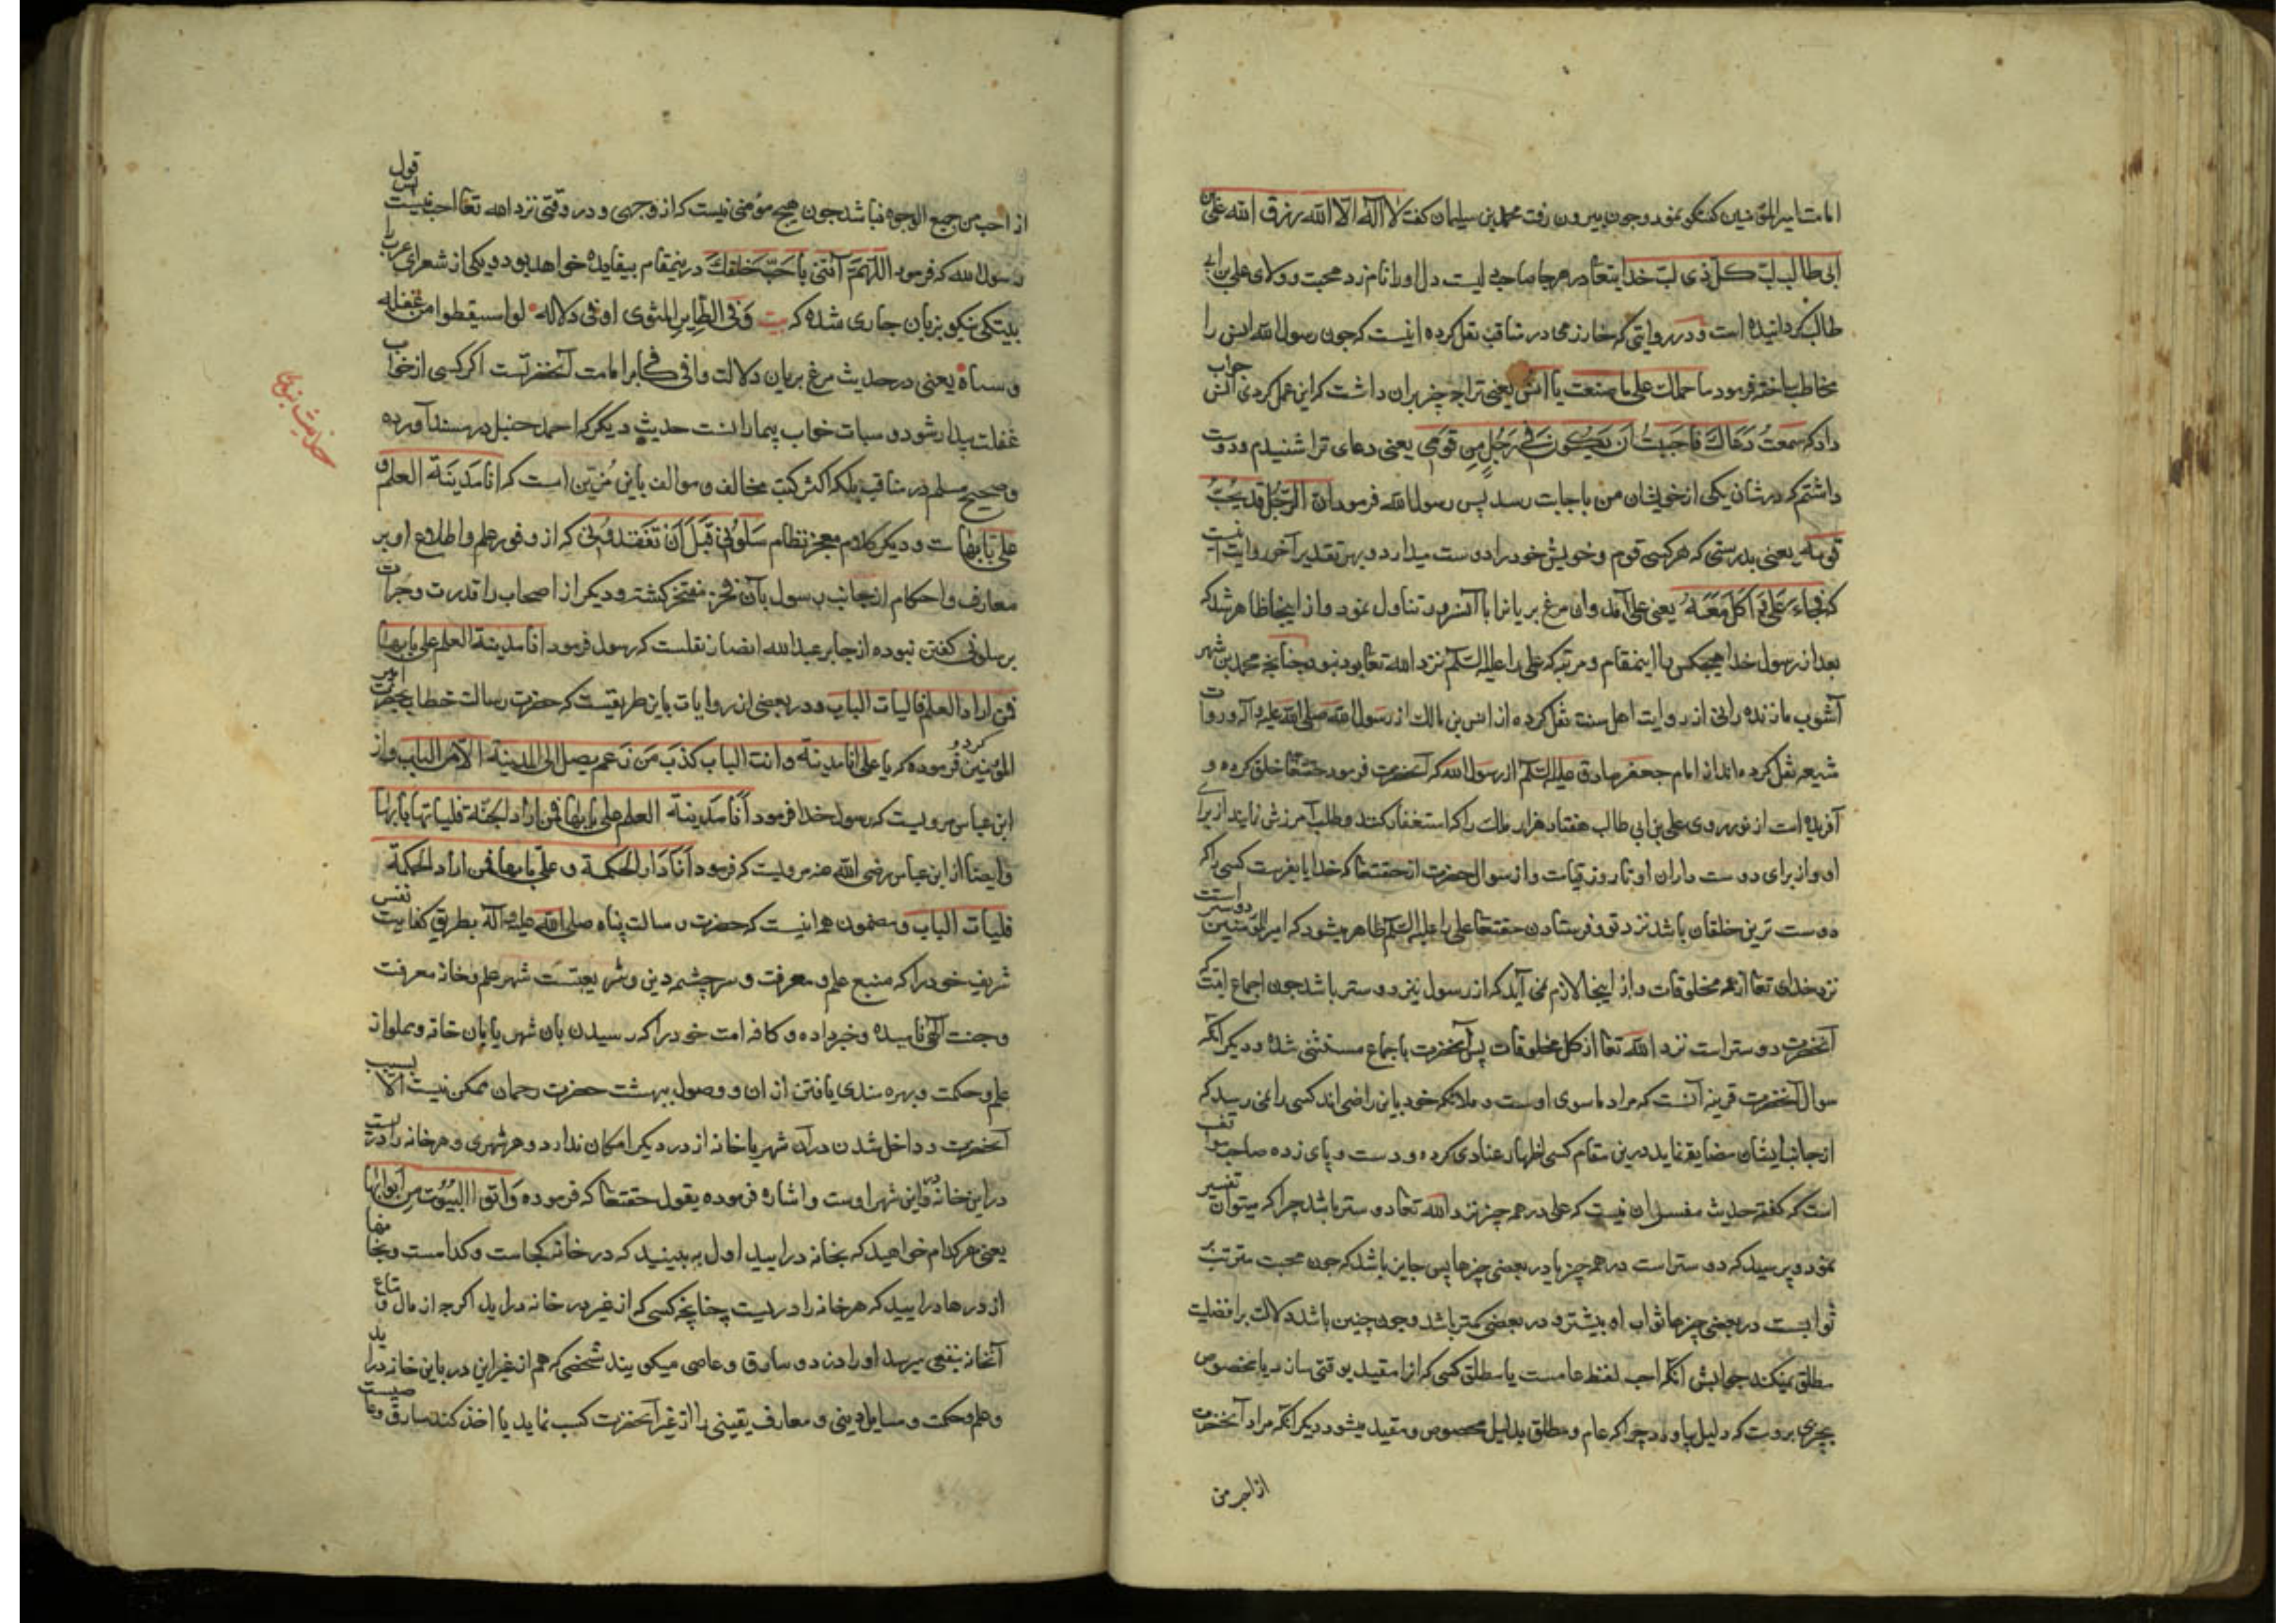 امامت امیرالمؤمنین کفتکو نمود و چون بیرون رفت محمد بن سلیمان کفت لا اله الا الله رزق الله علی بن
ابی طالب لبّ کل ذی لب خدایتعا در هر جا صاحب لبیست دل او را نامزد محبت و ولای علی بن ابی
طالب کردانیده است و در روایتی که خوارزمی در مناقب نقل کرده اینست که چون رسول الله انس را
مخاطب ساخته فرمود ما حملک علی ما صنعت یا انس یعنی ترا چه چیز بران داشت که این عمل کردی انس جواب
داد که سمعت دعاک فاحببت ان یکون فی رجل من قومی یعنی دعای ترا شنیدم و دوست
داشتم که در شان یکی از خویشان من باجابت رسد پس رسول الله فرمود ان الرجل قد یحب
قومه یعنی بدرستی که هر کسی قوم و خویش خود را دوست میدارد و بهر تقدیر آخر روایت اینست
که فجاء علی فاکل معه یعنی علی آمد وان مرغ بریانرا با آنسرور تناول نمود و از اینجا ظاهر شد که
بعد از رسول خدا هیچکس با اینمقام و مرتبه که علی را علیه السلم نزد الله تعا بود نبود چنانچه محمد بن شهر
آشوب مازندرانی از روایت اهل سنت نقل کرده از انس بن مالک از رسول الله صلی الله علیه و آله و روات
شیعه نقل کرده اند از امام جعفر صادق علیه السلم از رسول الله که آنحضرت فرمود حقتعا خلق کرده و
آفریده است از نور روی علی بن ابی طالب هفتاد هزار ملک را که استغفار کنند و طلب آمرزش نمایند از برای
او و از برای دوست داران او تا روز قیامت و از سوال حضرت از حقتعا که خدایا بفرست کسی را که
دوست ترین خلقان باشد نزد تو و فرستادن حقتعا علی را علیه السلم ظاهر میشود که امیرالمؤمنین دوستر است
نزد خدای تعا از همه مخلوقات و از اینجا لازم نمی آید که از رسول نیز دوستر باشد چون اجماع امت که
آنحضرت دوستر است نزد الله تعا از کل مخلوقات پس آنحضرت باجماع مستثنی شده و دیکر آنکه
سوال آنحضرت قرینه آنست که مراد ماسوی اوست و ملائکه خود باین راضی اند کسی را نمی رسد که
از جانب ایشان مضایقه نماید درین مقام کسی اظهار عنادی کرده و دست و پای زده صاحب مواقف
است که کفته حدیث مفسر ان نیست که علی در همه چیز نزد الله تعا دوستر باشد چرا که میتوان تفسیر
نمود و پرسید که دوستر است در همه چیز یا در بعضی چیزها پس جایز باشد که چون محبت مترتب بر
ثوابست در بعضی چیزها ثواب او بیشتر و در بعضی کمتر باشد و چون چنین باشد دلالت بر افضلیت
مطلق نمیکند جوابش آنکه احب لفظ عامست یا مطلق کسی که انرا مقید بوقتی سازد یا مخصوص
بچیزی بروست که دلیل بیاورد چرا که عام و مطلق بدلیل مخصوص و مقید میشود دیکر آنکه مراد آنحضرت
از احب من
از احب من جمیع الوجوه نباشد چون هیچ مؤمنی نیست که از وجهی و در وقتی نزد الله تعا احب نیست پس قول
رسول الله که فرمود اللهم آئتنی باحب خلقک درینمقام بیفایده خواهد بود و یکی از شعرای عرب را
بیتکی نیکو بزبان جاری شده که بیت وفی الطایر المشوی اوفی دلاله لو استیقظوا من غفلة
و سباة یعنی در حدیث مرغ بریان دلالت وافی کافی بر امامت آنحضرتست اکر کسی از خواب
غفلت بیدار شود و سبات خواب بیمارانست حدیث دیکر که احمد حنبل در مسند آورده
و صحیح مسلم در مناقب بلکه اکثر کتب مخالف و موالف باین مزین است که انا مدینة العلم و
علی بابها ست و دیکر کلام معجز نظام سلونی قبل ان تفقدونی که از وفور علم و اطلاع او بر
معارف و احکام از جانب رسول بآن فخر مفتخر کشته و دیکر از اصحاب را قدرت و جرات
بر سلونی کفتن نبوده از جابر عبد الله انصار نقلست که رسول فرمود انا مدینة العلم علی بابها
فمن اراد العلم فالیات الباب و در بعضی از روایات باین طریقیست که حضرت رسالت خطاب بحضرت امیر
المؤمنین کرد و فرموده که یا علی انا مدینة و انت الباب کذب من زعم یصل الی المدینة الا من الباب و از
ابن عباس مرویست که رسول خدا فرمود انا مدینة العلم علی بابها فمن اراد الجنة فلیاتها بابها
و ایضا از ابن عباس رضی الله عنه مرویست که فرمود انا دار الحکمة و علی بابها فمن اراد الحکمة
فلیات الباب و مضمون همه اینست که حضرت رسالت پناه صلی الله علیه و آله بطریق کفایت نفس
شریف خود را که منبع علم و معرفت و سرچشمه دین و شریعتست شهر علم و خانه معرفت
و جنت آلهی نامیده و خبر داده و کافه امت خود را که رسیدن بان شهر یا بان خانه و مملو از
علم و حکمت و بهره مندی یافتن از ان و وصول ببهشت حضرت رحمان ممکن نیست الا بسبب
آنحضرت و داخل شدن در آن شهر یا خانه از در دیکر امکان ندارد و هر شهری و هر خانه را دریست
در این خانه و در این شهر اوست و اشاره فرموده بقول حقتعا که فرموده وآتوا البیوت من ابوابها
یعنی هر کدام خواهید که بخانه درایید اول به ببینید که در خانه کجاست و کدامست و بخانها
از درها درایید که هر خانه را دریست چنانچه کسی که از غیر در خانه دراید اکر چه از مال و متاع
آنخانه بنفعی میرسد او را دزد و سارق و عاصی میکویند شخصی که هم از غیر این در باین خانه دراید
و علم و حکمت و مسایل دینی و معارف یقینی را از غیر آنحضرت کسب نماید یا اخذ کند سارق و عاصیست
حدیث نبوی